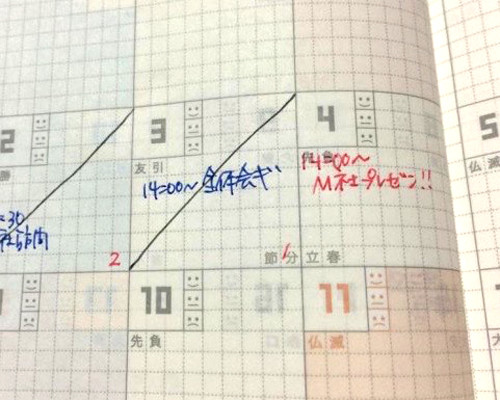 2
勝
:30
社訪問
2
3
友引
14:00~ 全体会ギ
節分
1
4
14:00~
M社プレゼン!!
立春
5
仏滅
10
先負
11
仏滅